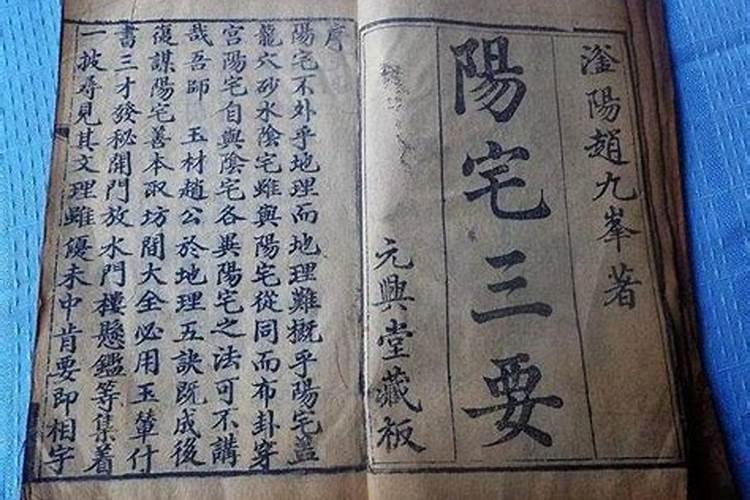 滏陽趙九峯著
陽宅三要
元興堂藏板
序
陽宅不外乎地理而地理難概乎陽宅蓋
龍穴砂水陰宅雖與陽宅從同而布卦穿
宮陽宅自與陰宅各異陽宅之法可不講
哉吾師 玉材趙公於地理五訣既成後
復謀陽宅善本取坊間大全必用玉輦什
書三才發秘開門放水門樓懸鑑等集着
一披尋見其文理雖優未中肯要即相字